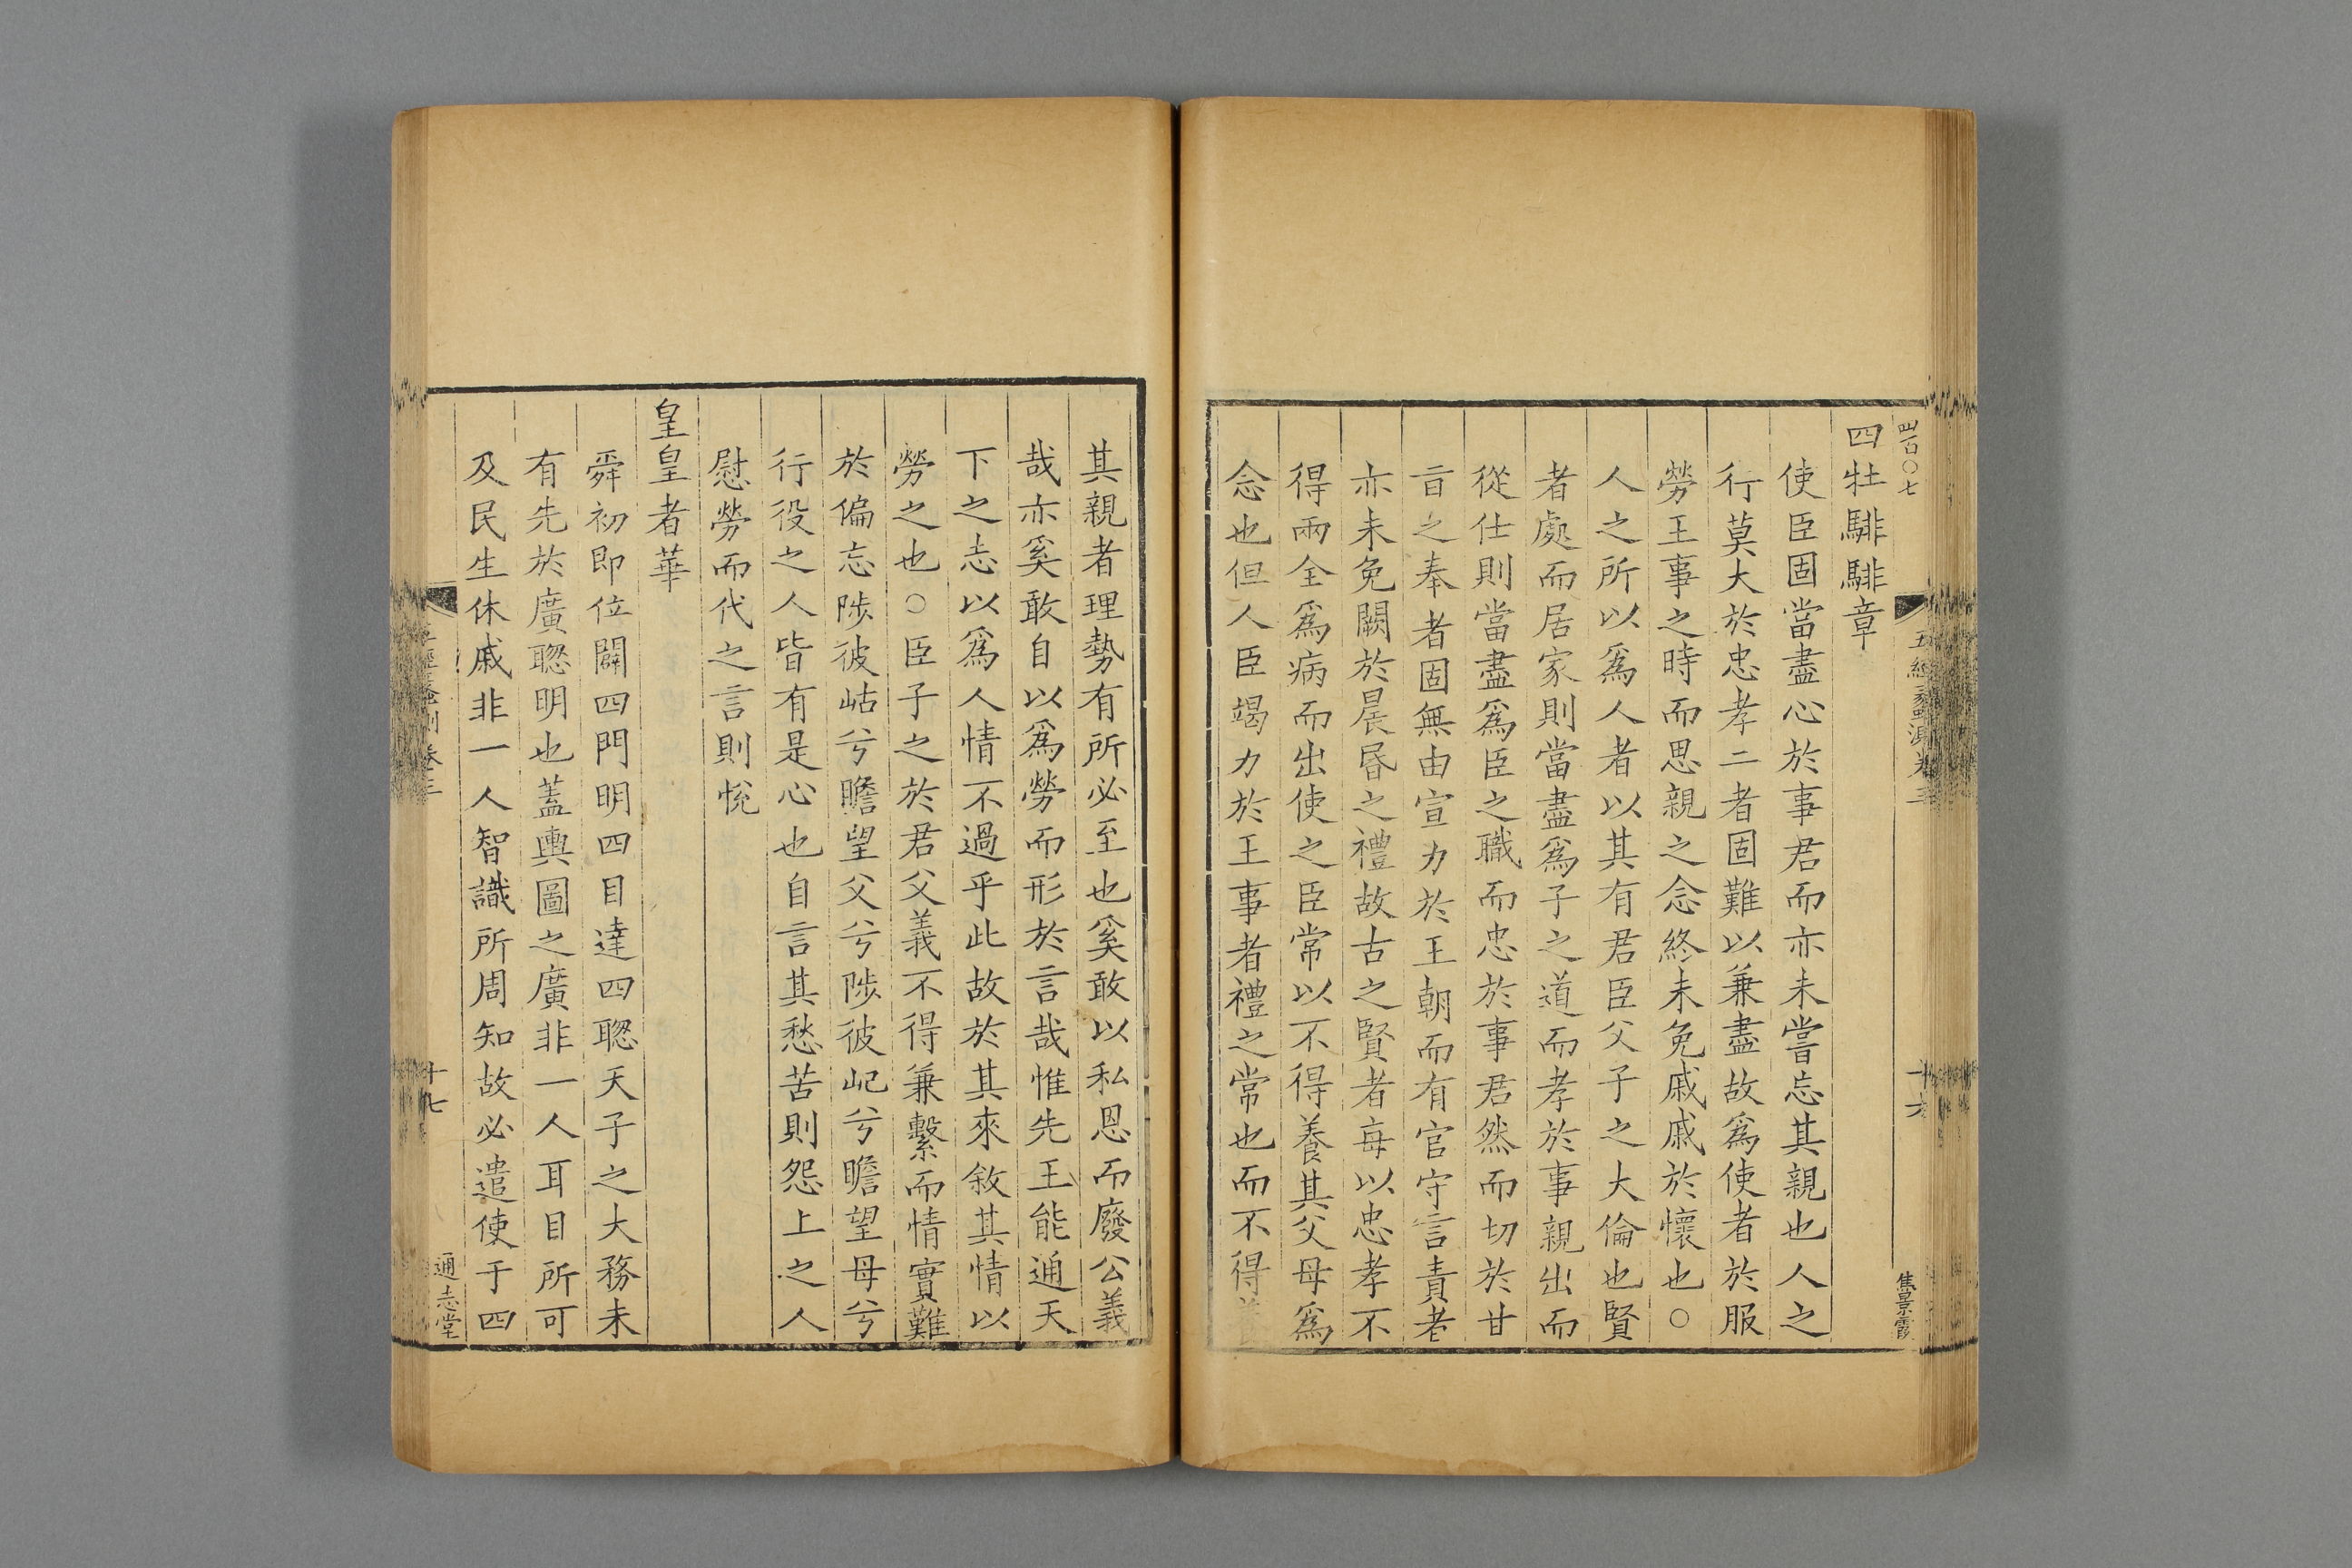 四百〇七
五經蠡測卷三
十六
焦景霞
四牡騑騑章
使臣固當盡心於事君而亦未嘗忘其親也人之
行莫大於忠孝二者固難以兼盡故爲使者於服
勞王事之時而思親之念終未免戚戚於懷也○
人之所以爲人者以其有君臣父子之大倫也賢
者處而居家則當盡爲子之道而孝於事親出而
從仕則當盡爲臣之職而忠於事君然而切於甘
㫖之奉者固無由宣力於王朝而有官守言責者
亦未免闕於晨昬之禮故古之賢者每以忠孝不
得兩全爲病而出使之臣常以不得養其父母爲
念也但人臣竭力於王事者禮之常也而不得
其親者理勢有所必至也奚敢以私恩而廢公義
哉亦奚敢自以爲勞而形於言哉惟先王能通天
下之志以爲人情不過乎此故於其來敘其情以
勞之也○臣子之於君父義不得兼繫而情實難
於偏忘陟彼岵兮瞻望父兮陟彼屺兮瞻望母兮
行役之人皆有是心也自言其愁苦則怨上之人
慰勞而代之言則悅
皇皇者華
舜初即位闢四門明四目達四聰天子之大務未
有先於廣聰明也蓋輿圖之廣非一人耳目所可
及民生休戚非一人智識所周知故必遣使于四
五經蠡測卷三
十七
通志堂